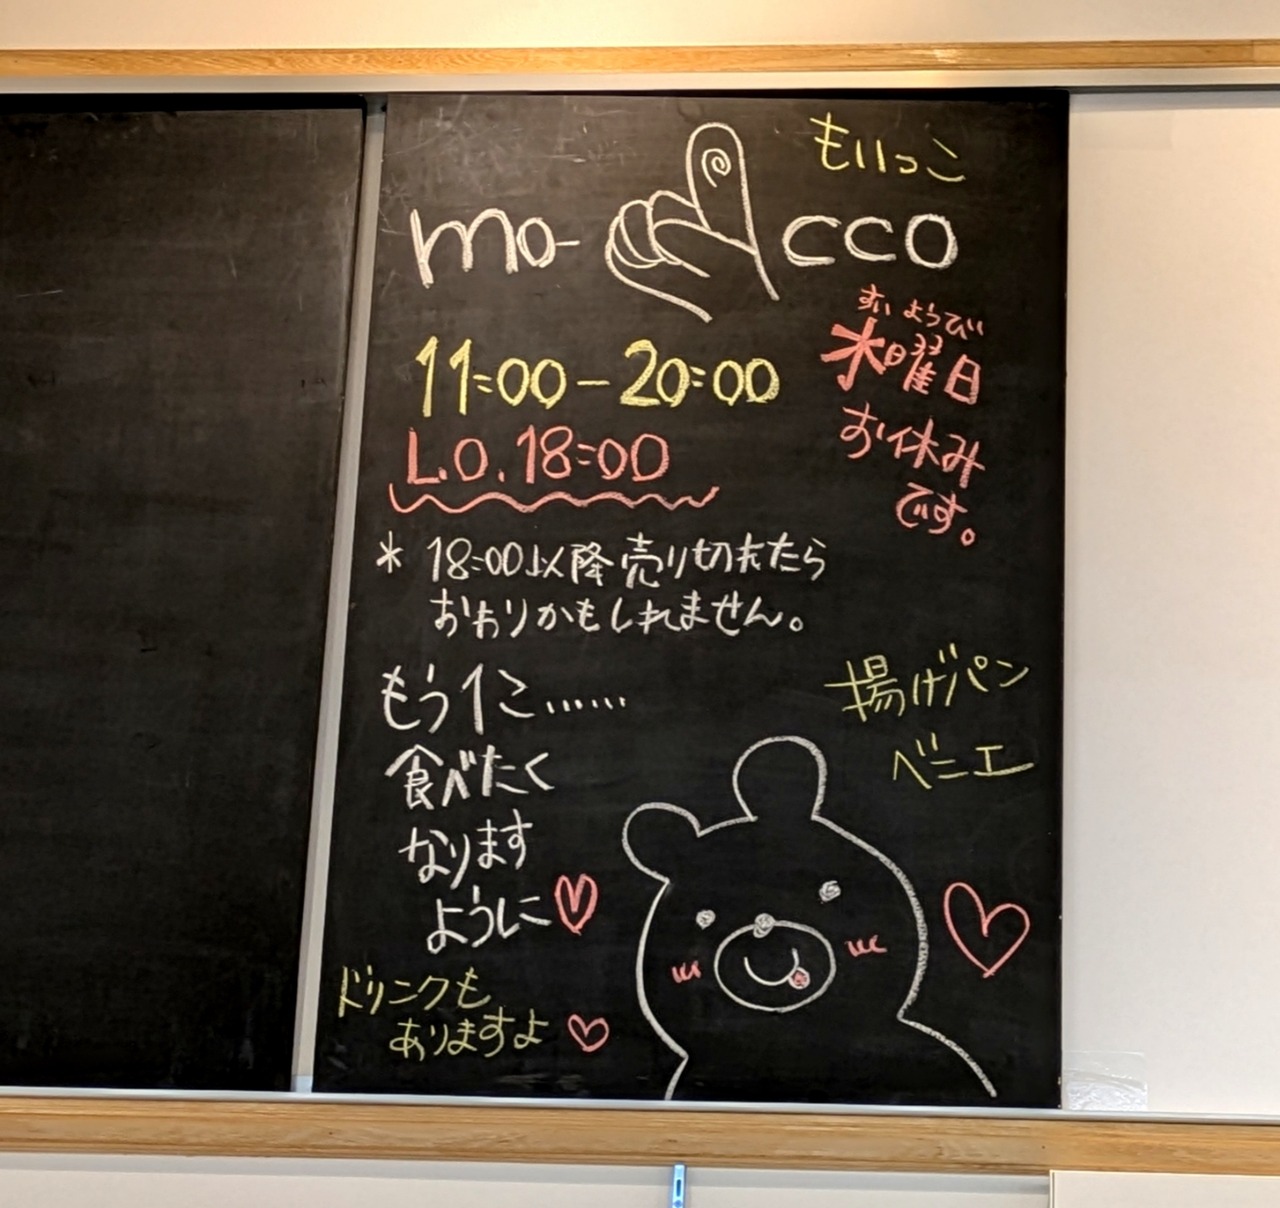 もいっこ
mo- cco
11:00-20:00
L.O.18:00
すいようび
水曜日
お休み
です。
* 18:00以降売り切れたら
おわりかもしれません。
もう1こ……
食べたく
なります
ように
揚げパン
ベニエ
ドリンクも
ありますよ